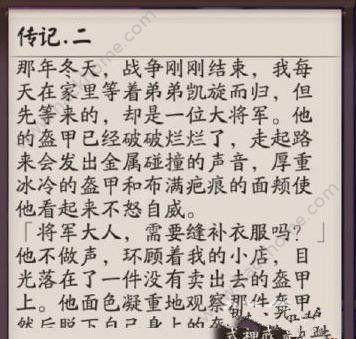 传记.二
那年冬天，战争刚刚结束，我每
天在家里等着弟弟凯旋而归，但
先等来的，却是一位大将军。他
的盔甲已经破破烂烂了，走起路
来会发出金属碰撞的声音，厚重
冰冷的盔甲和布满疤痕的面颊使
他看起来不怒自威。
「将军大人，需要缝补衣服吗？」
他不做声，环顾着我的小店，目
光落在了一件没有卖出去的盔甲
上。他面色凝重地观察那件盔甲
然后脱下自己身上的盔